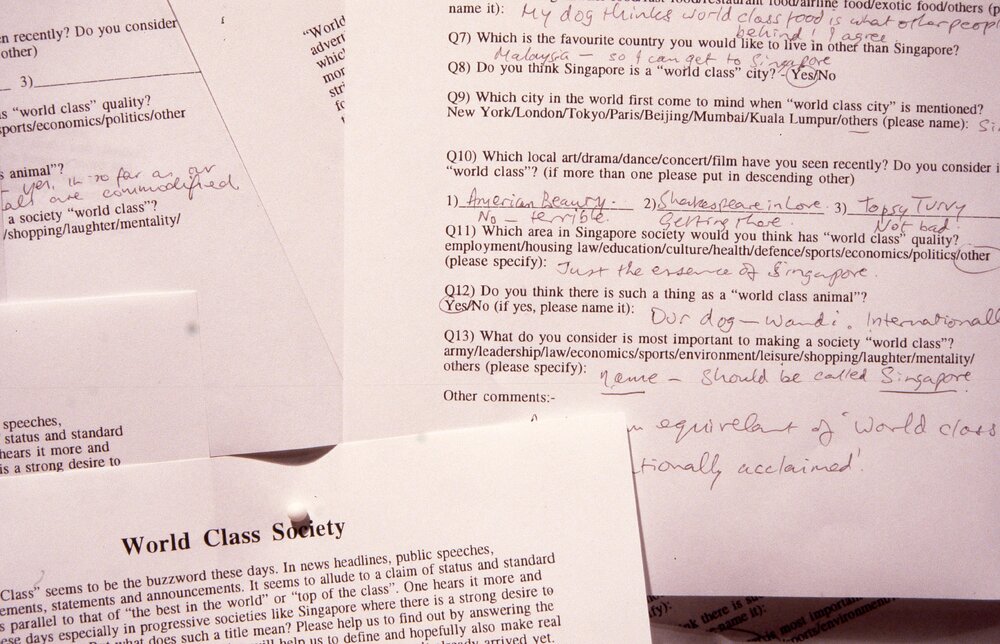 food/restaurant food/airline food/exotic food/others
name it): My dog thinks world class food is what other peop
behind! I agree
Q7) Which is the favourite country you would like to live in other than Singapore?
Malaysia – so I can get to Singapore
Q8) Do you think Singapore is a “world class” city? - Yes/No
Q9) Which city in the world first come to mind when “world class city” is mentioned?
New York/London/Tokyo/Paris/Beijing/Mumbai/Kuala Lumpur/others (please name): Si
Q10) Which local art/drama/dance/concert/film have you seen recently? Do you consider i
“world class”? (if more than one please put in descending other)
1) American Beauty. 2) Shakespeare in Love. 3) Topsy Turvy
No – terrible. Getting there. Not bad.
Q11) Which area in Singapore society would you think has “world class” quality?
employment/housing law/education/culture/health/defence/sports/economics/politics/other
(please specify): Just the essence of Singapore.
Q12) Do you think there is such a thing as a “world class animal”?
Yes/No (if yes, please name it): Our dog – Wandi. Internationall
Q13) What do you consider is most important to making a society “world class”?
army/leadership/law/economics/sports/environment/leisure/shopping/laughter/mentality/
others (please specify): name – should be called Singapore
Other comments:-
equivelant of ‘world class
tionally acclaimed’.
n recently? Do you consider
other)
3)
s “world class” quality?
sports/economics/politics/other
s animal”?
yes, in so far as
all are commodified
a society “world class”?
/shopping/laughter/mentality/
“World
advert
which
mor
speeches,
status and standard
hears it more and
is a strong desire to
World Class Society
Class” seems to be the buzzword these days. In news headlines, public speeches,
ements, statements and announcements. It seems to allude to a claim of status and standard
s parallel to that of “the best in the world” or “top of the class”. One hears it more and
se days especially in progressive societies like Singapore where there is a strong desire to
what does such a title mean? Please help us to find out by answering the
help us to define and hopefully also make real
arrived yet.